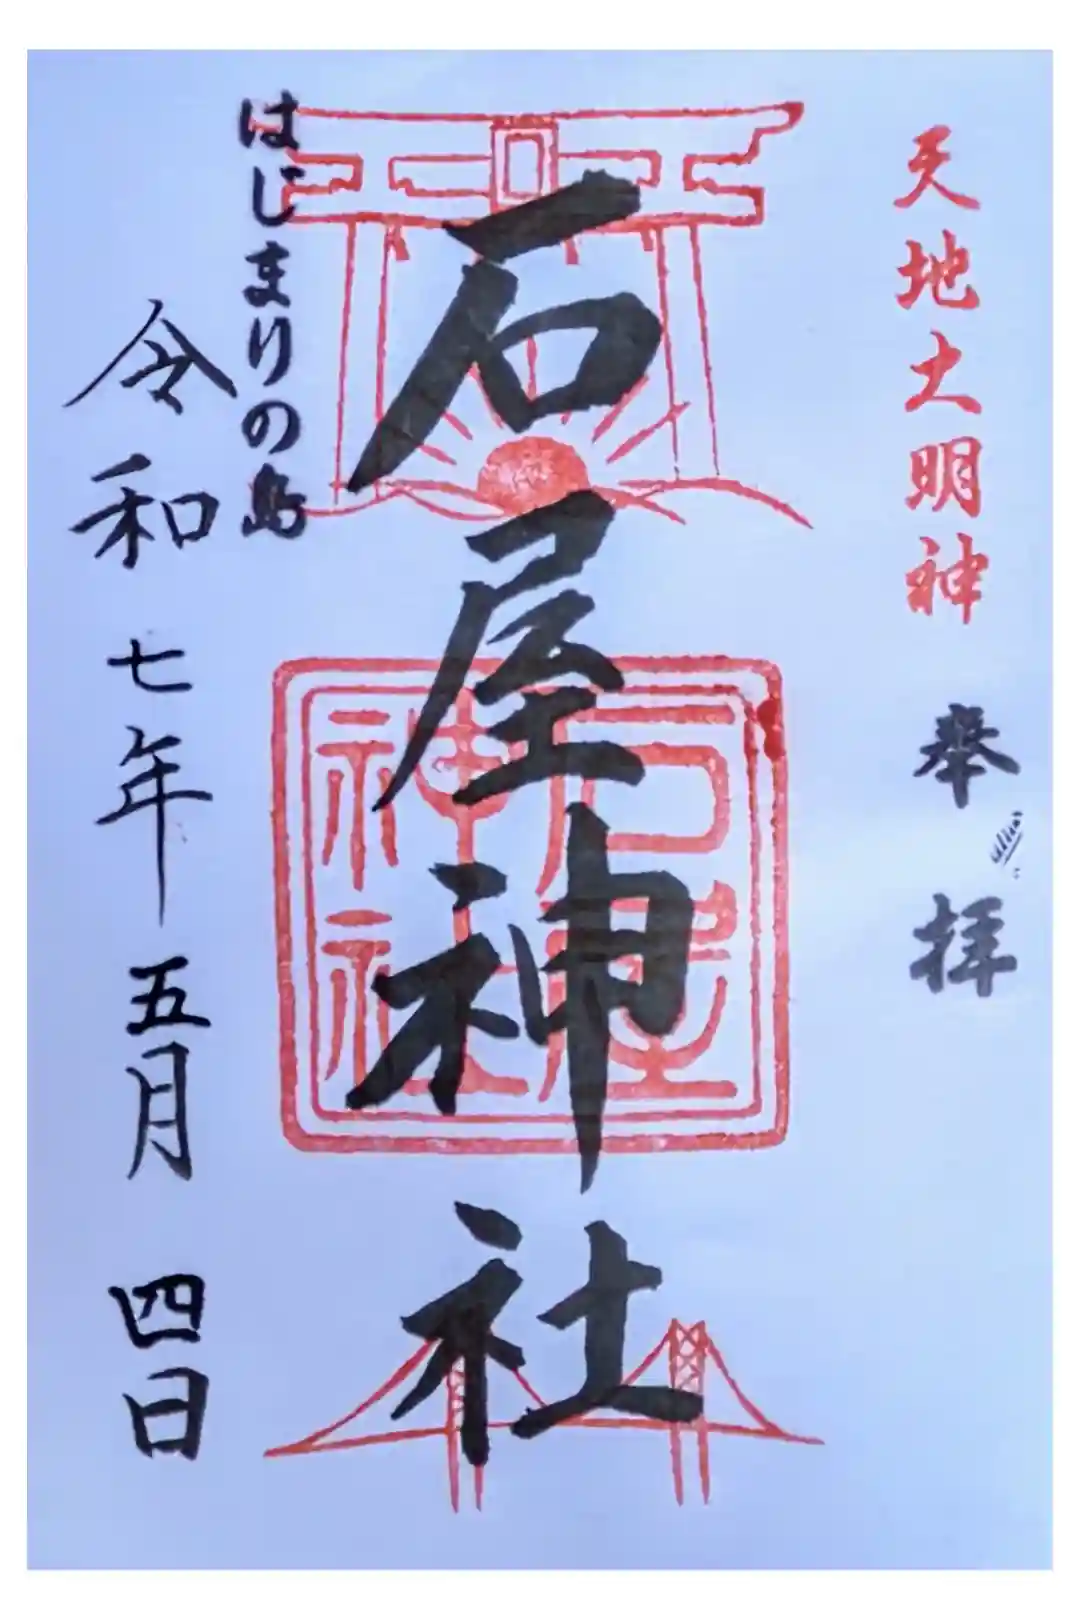 天地大明神
奉拝
石屋神社
石屋
神社
はじまりの島
令和七年五月四日